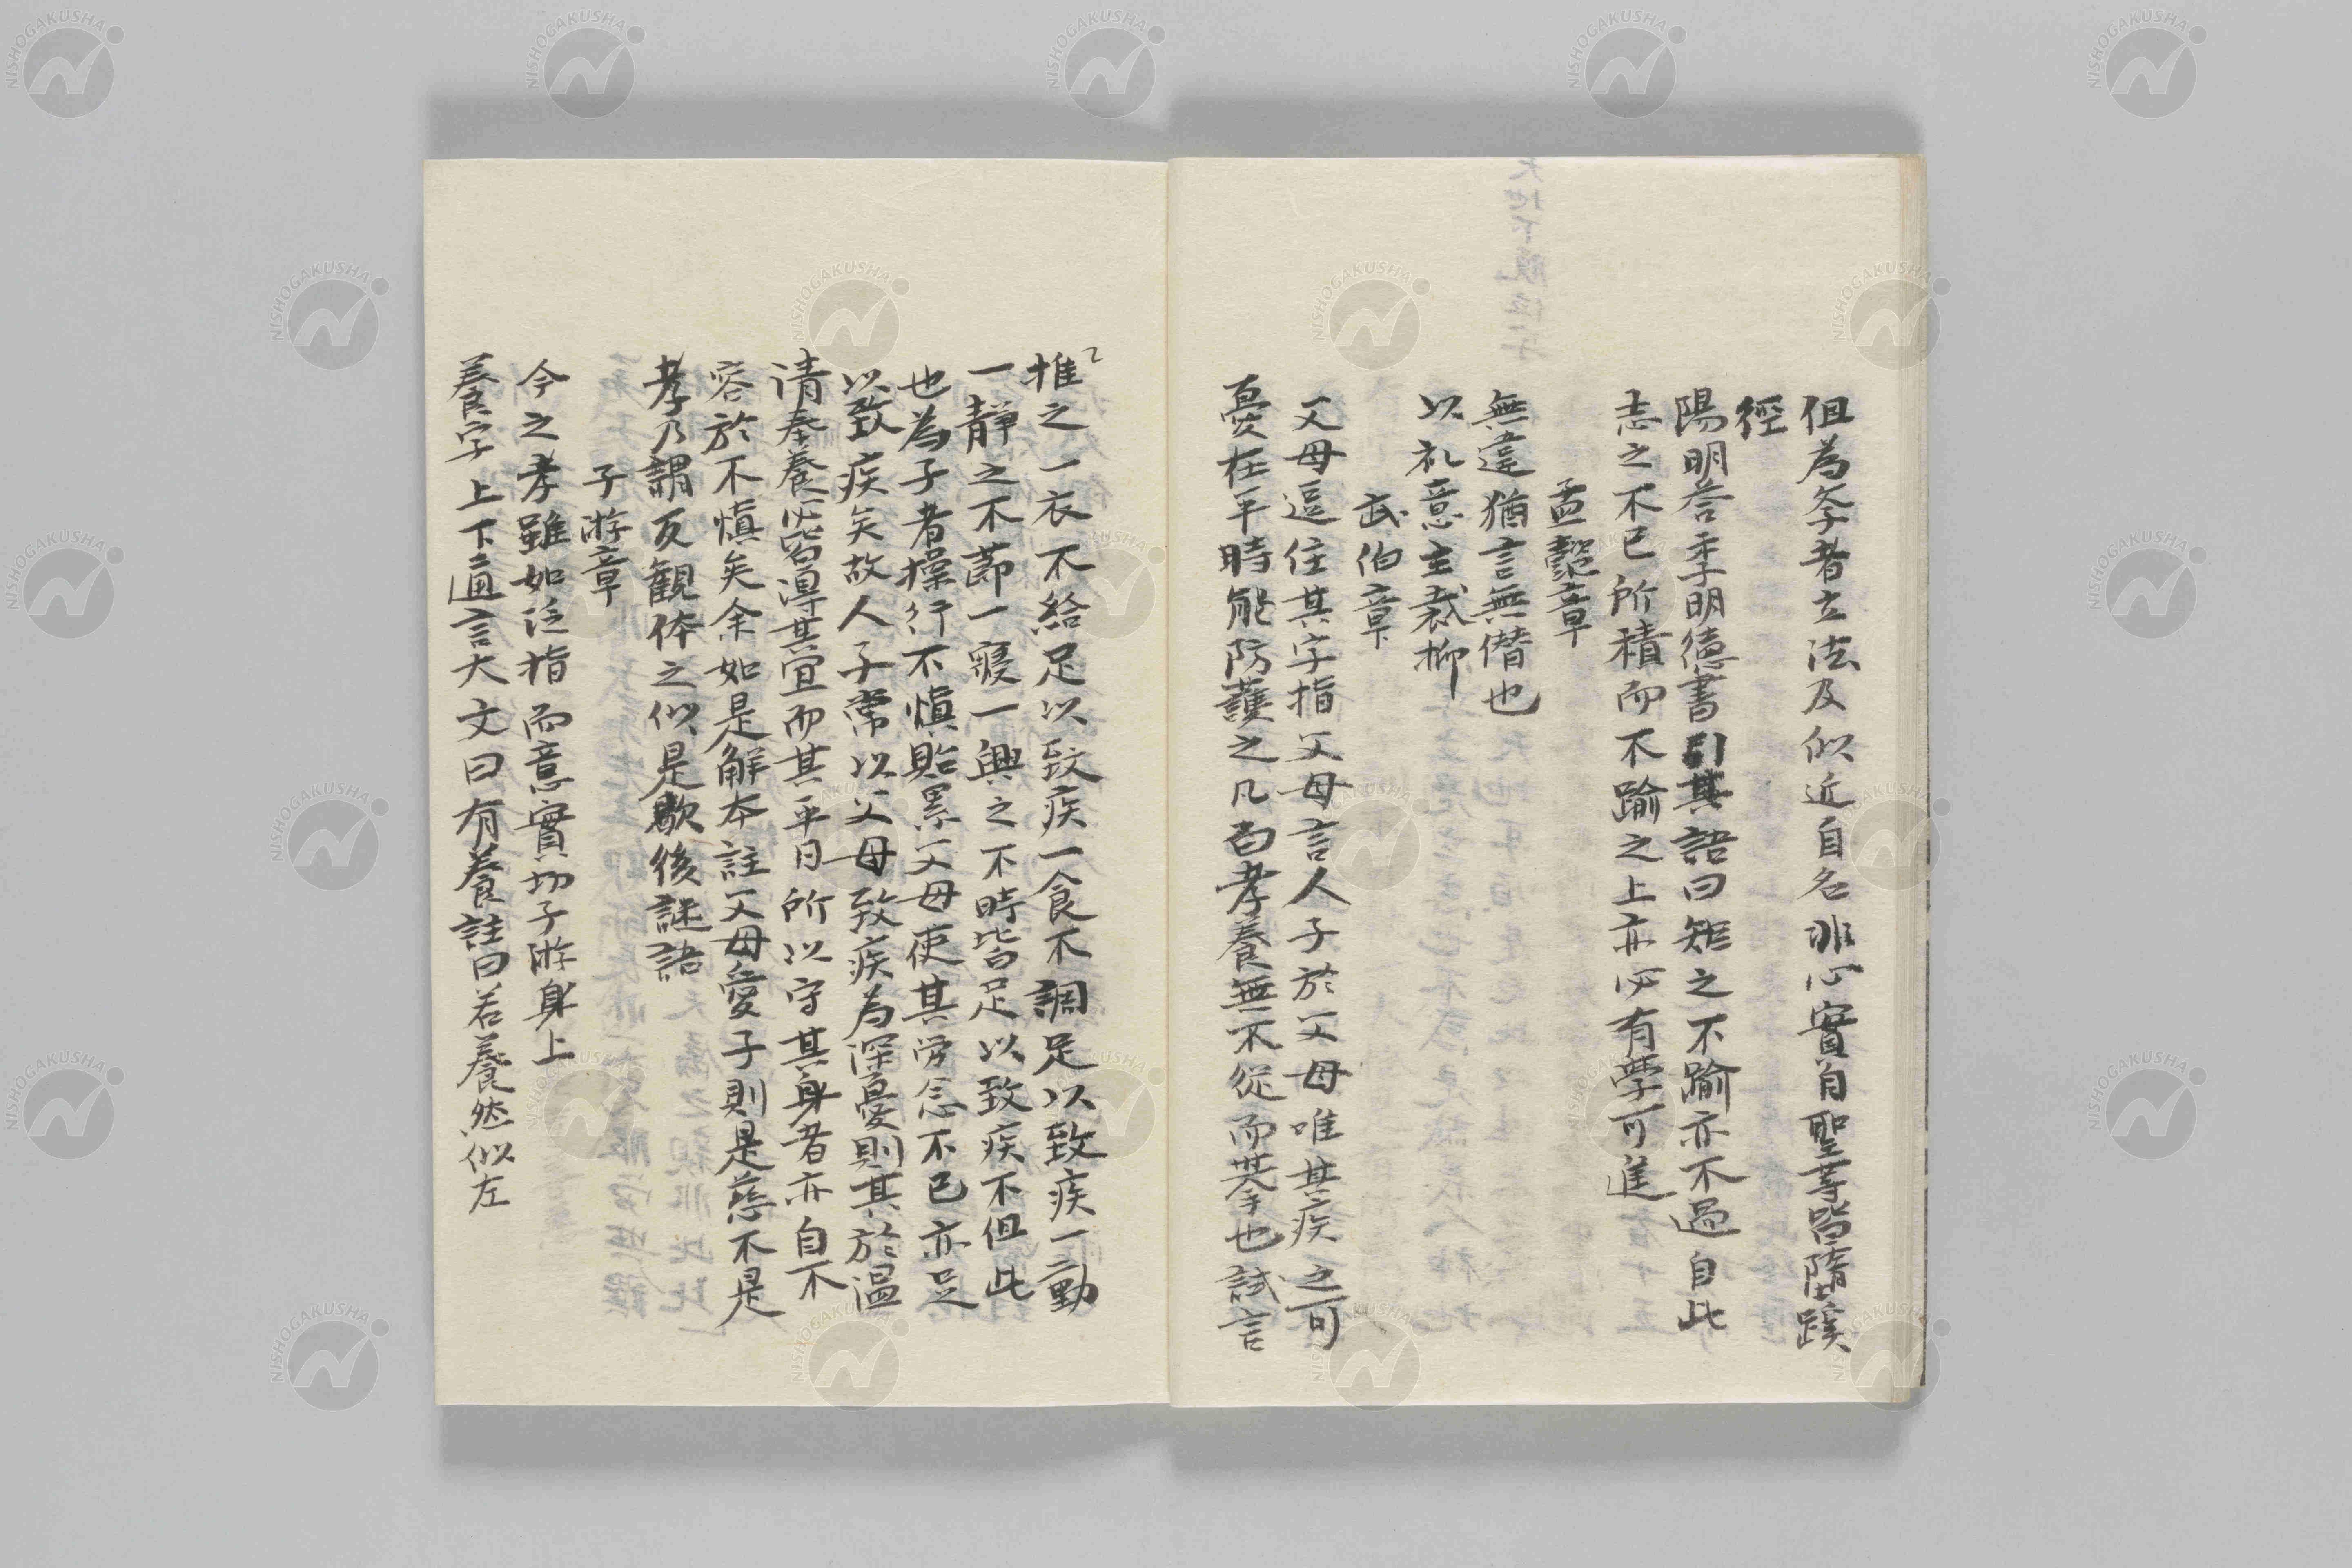 但為学者立法及似近自名非心實自聖等皆隋蹊
徑
陽明答季明德書引其語曰矩之不踰亦不過自此
志之不已所積而不踰之上亦必有學可進
孟懿章
無違猶言無僭也
以礼意主裁抑
武伯章
父母這住其字指父母言人子於父母唯其疾之可
憂在平時能防護之凡百孝養無不從而挙也試言
推之一衣不給足以致疾一食不調足以致疾一動
一靜之不節一寢一興之不時皆足以致疾不但此
也為子者操行不慎貽累父母使其労念不已亦足
以致疾矣故人子常以父母致疾為深憂則其於温
清奉養必皆得其宜而其平日所以守其身者亦自不
容於不慎矣余如是解本註父母愛子則是慈不是
孝乃謂反観体之似是歇後謎語
子游章
今之孝雖如泛指而意實切子游身上
養字上下通言大文曰有養註曰若養然似左
NISHOGAKUSHA